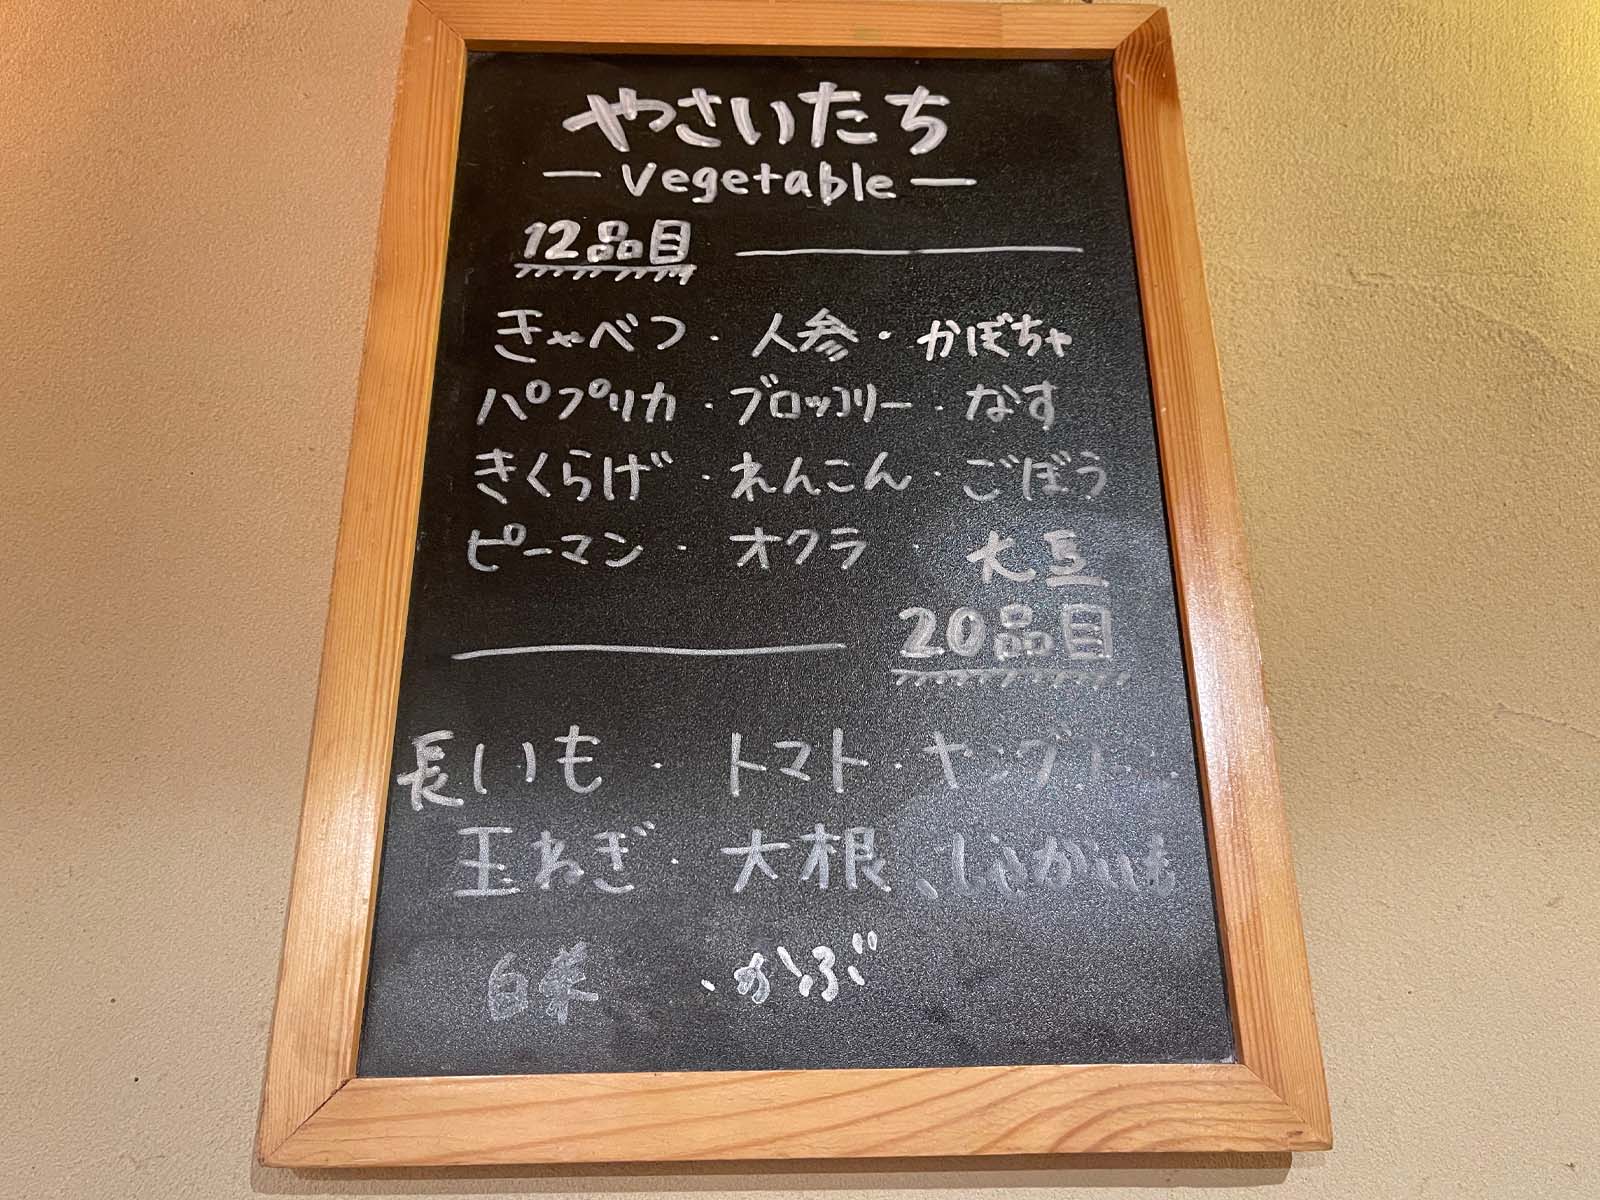 やさいたち
— Vegetable —
12品目
きゃべつ・人参・かぼちゃ
パプリカ・ブロッコリー・なす
きくらげ・れんこん・ごぼう
ピーマン・オクラ・大豆
20品目
長いも・トマト・ヤング
玉ねぎ・大根、じゃがいも
白菜・かぶ